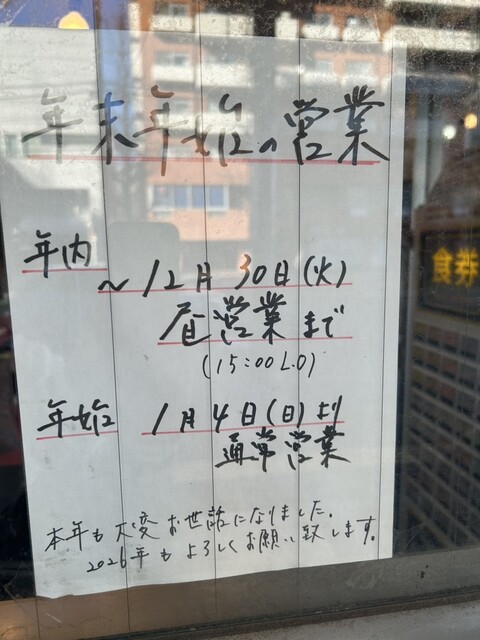 年末年始の営業
年内
～12月30日(火)
昼営業まで
(15:00 L.O)
年始 1月4日(日)より
通常営業
本年も大変お世話になりました。
2026年もよろしくお願い致します。
食券